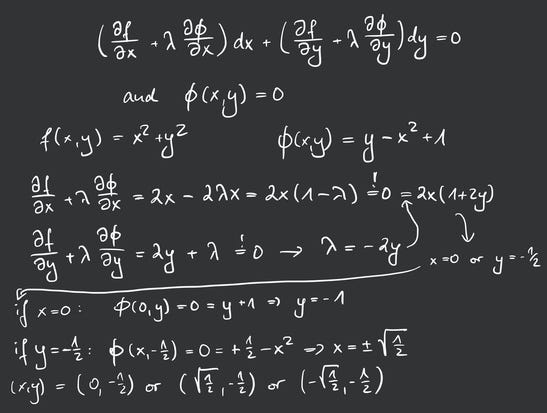 (∂f/∂x + λ ∂ϕ/∂x) dx + (∂f/∂y + λ ∂ϕ/∂y) dy = 0
and ϕ(x,y) = 0
f(x,y) = x² + y² ϕ(x,y) = y - x² + 1
∂f/∂x + λ ∂ϕ/∂x = 2x - 2λx = 2x(1-λ) =! 0 = 2x(1+2y)
∂f/∂y + λ ∂ϕ/∂y = 2y + λ =! 0 → λ = -2y
x=0 or y=-1/2
if x=0: ϕ(0,y) = 0 = y+1 ⇒ y = -1
if y=-1/2: ϕ(x,-1/2) = 0 = +1/2 - x² ⇒ x = ±√(1/2)
(x,y) = (0,-1/2) or (√(1/2),-1/2) or (-√(1/2),-1/2)